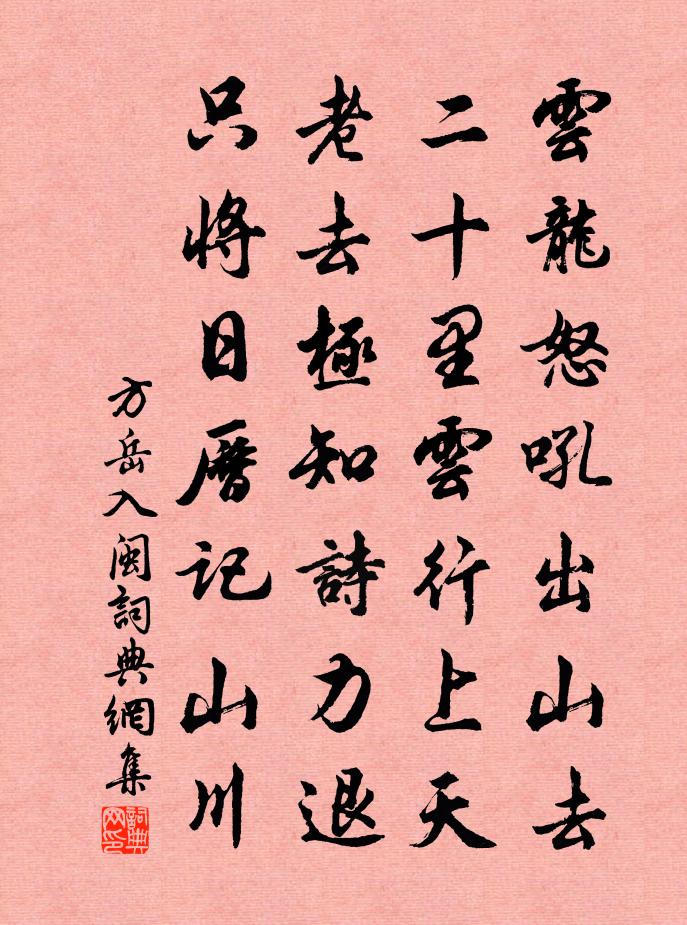 雲龍怒吼出山去
二十里雲行上天
老去極知詩力退
只將日曆記山川
方岳入閩詞典網集
詞典网印